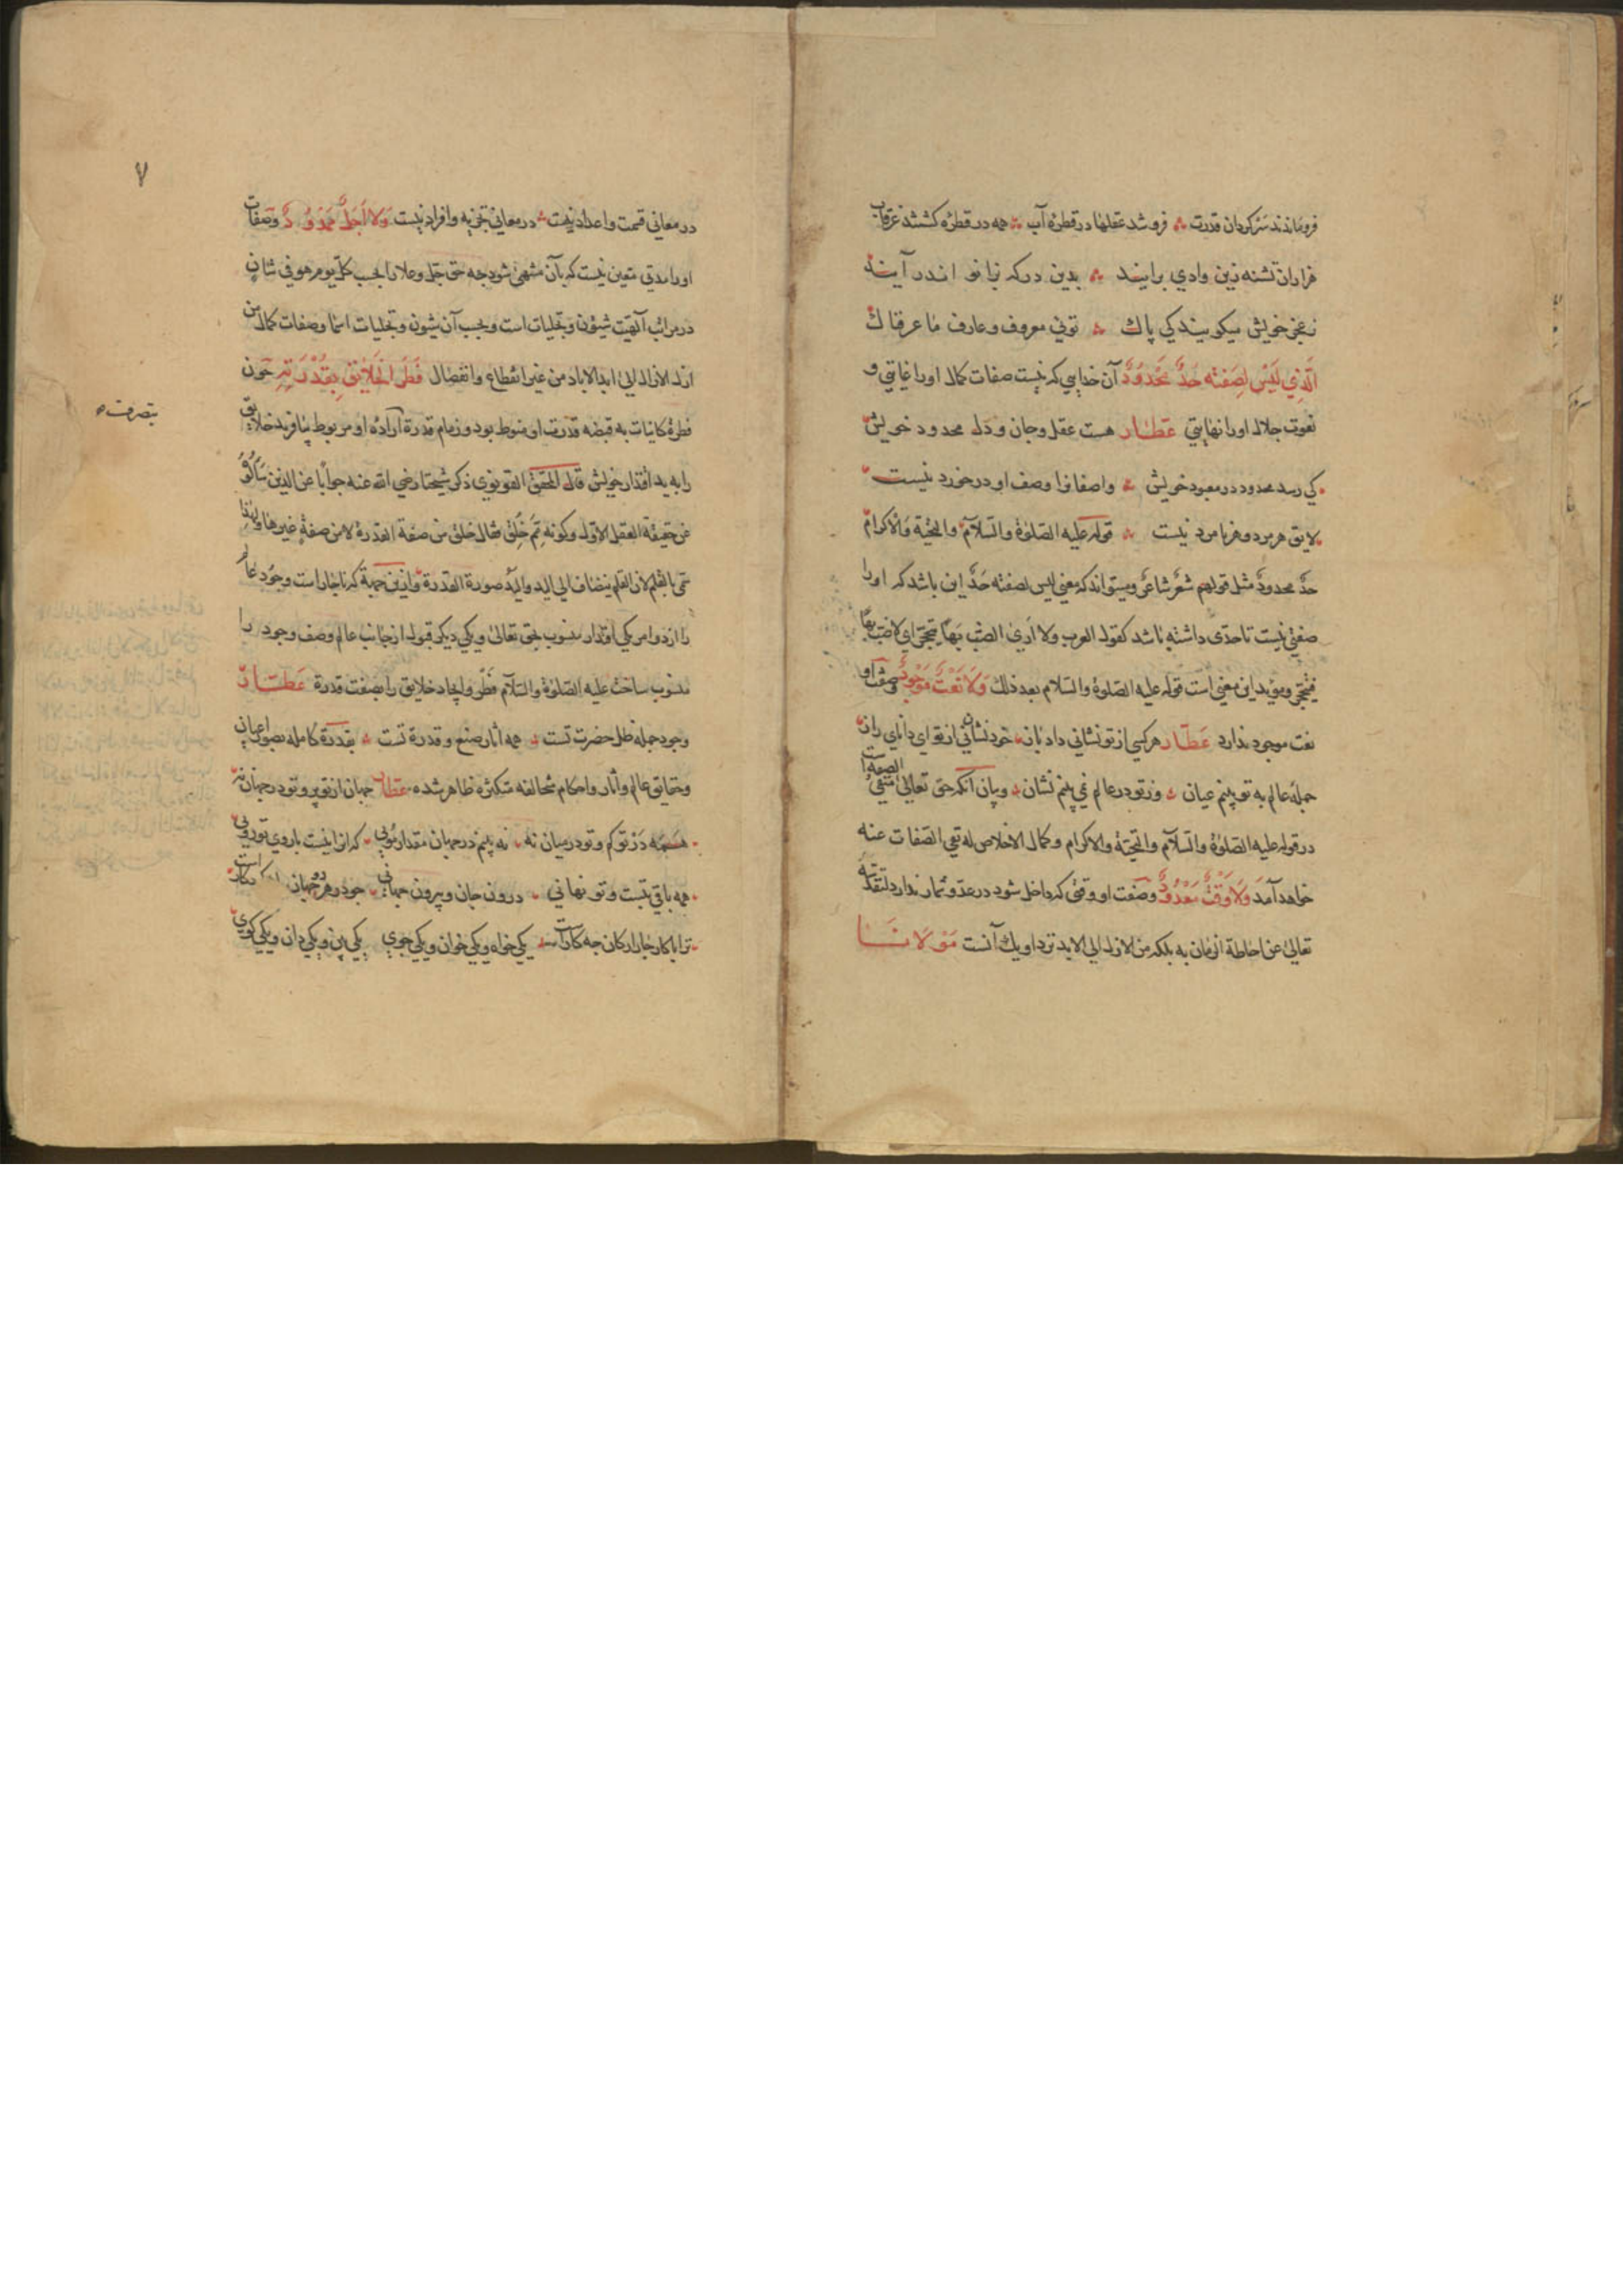 فروماندند سرکردان قدرت فرو شد عقلها در قطرۀ آب همه در قطرۀ کشتند غرقاب
هزاران تشنه زین وادي برایند بدین درکه بزانو اندر آیند
ز عجز خویش میکویند کي پاك تویي معروف و عارف ما عرفناك
الَّذِي لَیْسَ لِصِفَتِهِ حَدٌّ مَحْدُودٌ آن خدایي که نیست صفات کمال اورا غایتي و
نعوت جلال اورا نهایتي عطار هست عقل وجان ودل محدود خویش
کي رسد محدود در معبود خویش واصفانرا وصف او درخورد نیست
لایق هر مرد وهر نامرد نیست قوله علیه الصلوة والسلام والتحیة والاکرام
حدٌّ محدودٌ مثل قولهم شعرٌ شاعرٌ ومیتواند که معني لیس لصفته حدٌّ این باشد که اورا
صفتي نیست تا حدّی داشته باشد کقول العرب ولا اری الضب بها ینجحر اي لا ضب بها
فینجحر ومؤید این معني است قوله علیه الصلوة والسلام بعد ذلك وَلَا نَعْتٌ مَوْجُودٌ وصفت او
نعت موجود ندارد عطّار هرکسي از تو نشاني داد باز خود نشاني نیست از تو اي داناي راز
جملۀ عالم به تو بینم عیان وز تو در عالم نمي بینم نشان وبیان آنکه حق تعالی منتفي الصفة
در قوله علیه الصلوة والسلام والتحیة والاکرام وکمال الاخلاص له نفي الصفات عنه
خواهد آمد وَلَا وَقْتٌ مَعْدُودٌ وصفت او وقتي که داخل شود در عدّ وشمار ندارد لتقدسه
تعالی عن احاطة الزمان به بلکه من الازل الي الابد نزد او یك آنست مَوْلَانَا
۷
در معاني قسمت واعداد نیست در معاني تجزیه وافراد نیست وَلَا أَجَلٌ مَمْدُودٌ وصفات
اورا مدتي متعین نیست که بآن منتهي شود چه حق جل وعلا را بحسب کلّ یوم هو في شان
در مراتب الهیت شیؤن وتجلیات است وبحسب آن شیون وتجلیات اسما وصفات کمال من
ازل الازال الي ابد الاباد من غیر انقطاع وانفصال فَطَرَ الْخَلَائِقَ بِقُدْرَتِهِ چون
فطرۀ کاینات به قبضه قدرت او منوط بود وزمام قدرة اراده او مربوط بیافرید خلایق
را به ید اقتدار خویش قال المحقق القونوي ذکر شیخنا رضي الله عنه جوابا عن الذین سألوه
عن حقیقة العقل الاول وکونه مِمَّ خُلِقَ فقال خلق من صفة القدرة لا من صفةٍ غیرها ولهذا
سمي بالقلم لان القلم یضاف الي الید والید صورة القدرة وازین جهة که ناچار است وجود عالم
را از دو امر یکي اقتدار منسوب بحق تعالی ویکي دیگر قبول از جانب عالم وصف وجود را
منسوب ساخت علیه الصلوة والسلام فطر وایجاد خلایق را بصفت قدرة عطار
وجود جمله ظل حضرت تست همه آثار صنع و قدرة تست بقدرة کامله صور اعیان
وحقایق عالم وآثار واحکام متخالفه متکثره ظاهر شده عطار جهان از تو پر وتو در جهان نه
همه در تو کم وتو در میان نه نه بینم در جهان مقدار مویي که آنرا نیست با روي تو رویي
همه باقي بتست وتو نهاني درون جان وبیرون جهاني
ترا با کار چار ارکان چه کارست یکي خواه ویکي خوان ویکي جوي یکي بین ویکي دان ویکي کوي
بتصرف